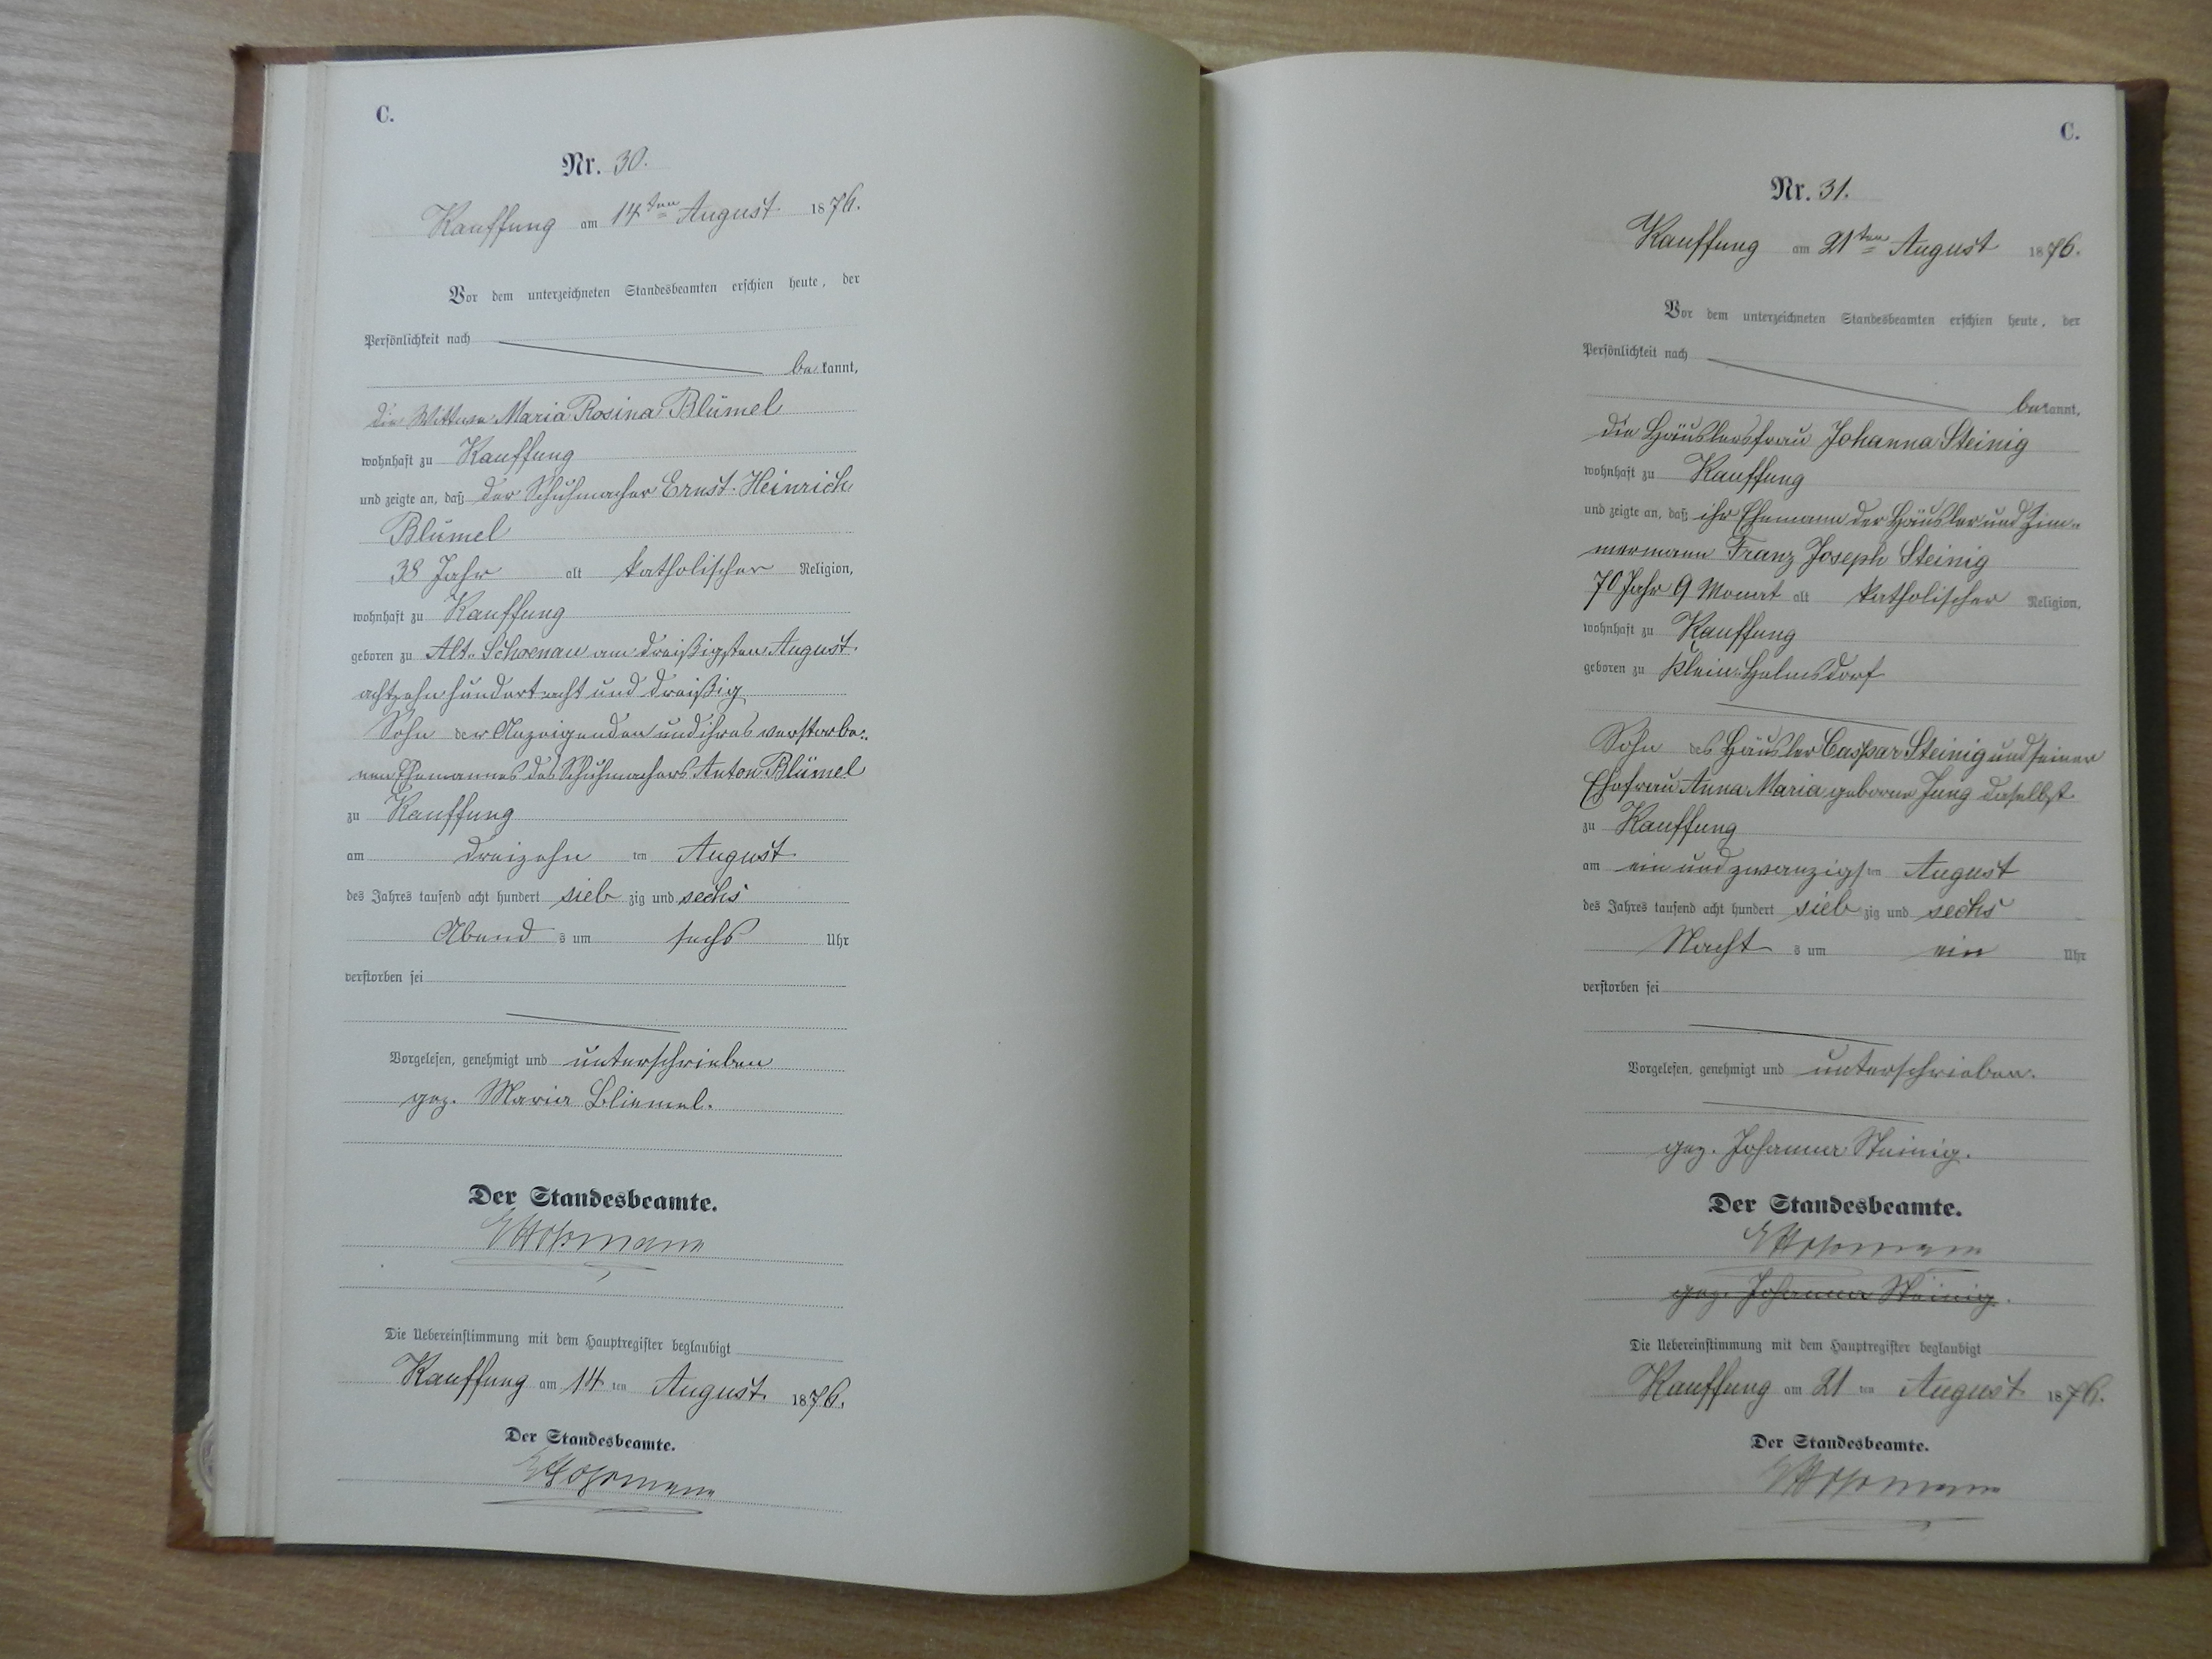 C.
Nr. 30.
Kauffung am 14ten August 1876.
Vor dem unterzeichneten Standesbeamten erschien heute, der
Persönlichkeit nach
bekannt,
die Wittwe Maria Rosina Blümel
wohnhaft zu Kauffung
und zeigte an, daß der Schuhmacher Ernst Heinrich
Blümel
38 Jahr alt katholischer Religion,
wohnhaft zu Kauffung
geboren zu Alt-Schoenau am dreißigsten August
achtzehnhundert acht und dreißig
Sohn der Anzeigenden und ihres verstorbe-
nen Ehemannes des Schuhmachers Anton Blümel
zu Kauffung
am dreizehn ten August
des Jahres tausend acht hundert siebzig und sechs
Abends um sechs Uhr
verstorben sei
Vorgelesen, genehmigt und unterschrieben
gez. Maria Bliemel.
Der Standesbeamte.
Die Uebereinstimmung mit dem Hauptregister beglaubigt
Kauffung am 14 ten August 1876.
Der Standesbeamte.
C.
Nr. 31.
Kauffung am 21ten August 1876.
Vor dem unterzeichneten Standesbeamten erschien heute, der
Persönlichkeit nach
bekannt,
die Häuslersfrau Johanna Steinig
wohnhaft zu Kauffung
und zeigte an, daß ihr Ehemann der Häusler und Zim-
mermann Franz Joseph Steinig
70 Jahr 9 Monat alt katholischer Religion,
wohnhaft zu Kauffung
geboren zu Klein-Helmsdorf
Sohn des Häusler Caspar Steinig und seiner
Ehefrau Anna Maria geborne Jung daselbst
zu Kauffung
am ein und zwanzigsten August
des Jahres tausend acht hundert siebzig und sechs
Nachts um ein Uhr
verstorben sei
Vorgelesen, genehmigt und unterschrieben.
gez. Johanna Steinig.
Der Standesbeamte.
gez. Johanna Steinig.
Die Uebereinstimmung mit dem Hauptregister beglaubigt
Kauffung am 21 ten August 1876.
Der Standesbeamte.